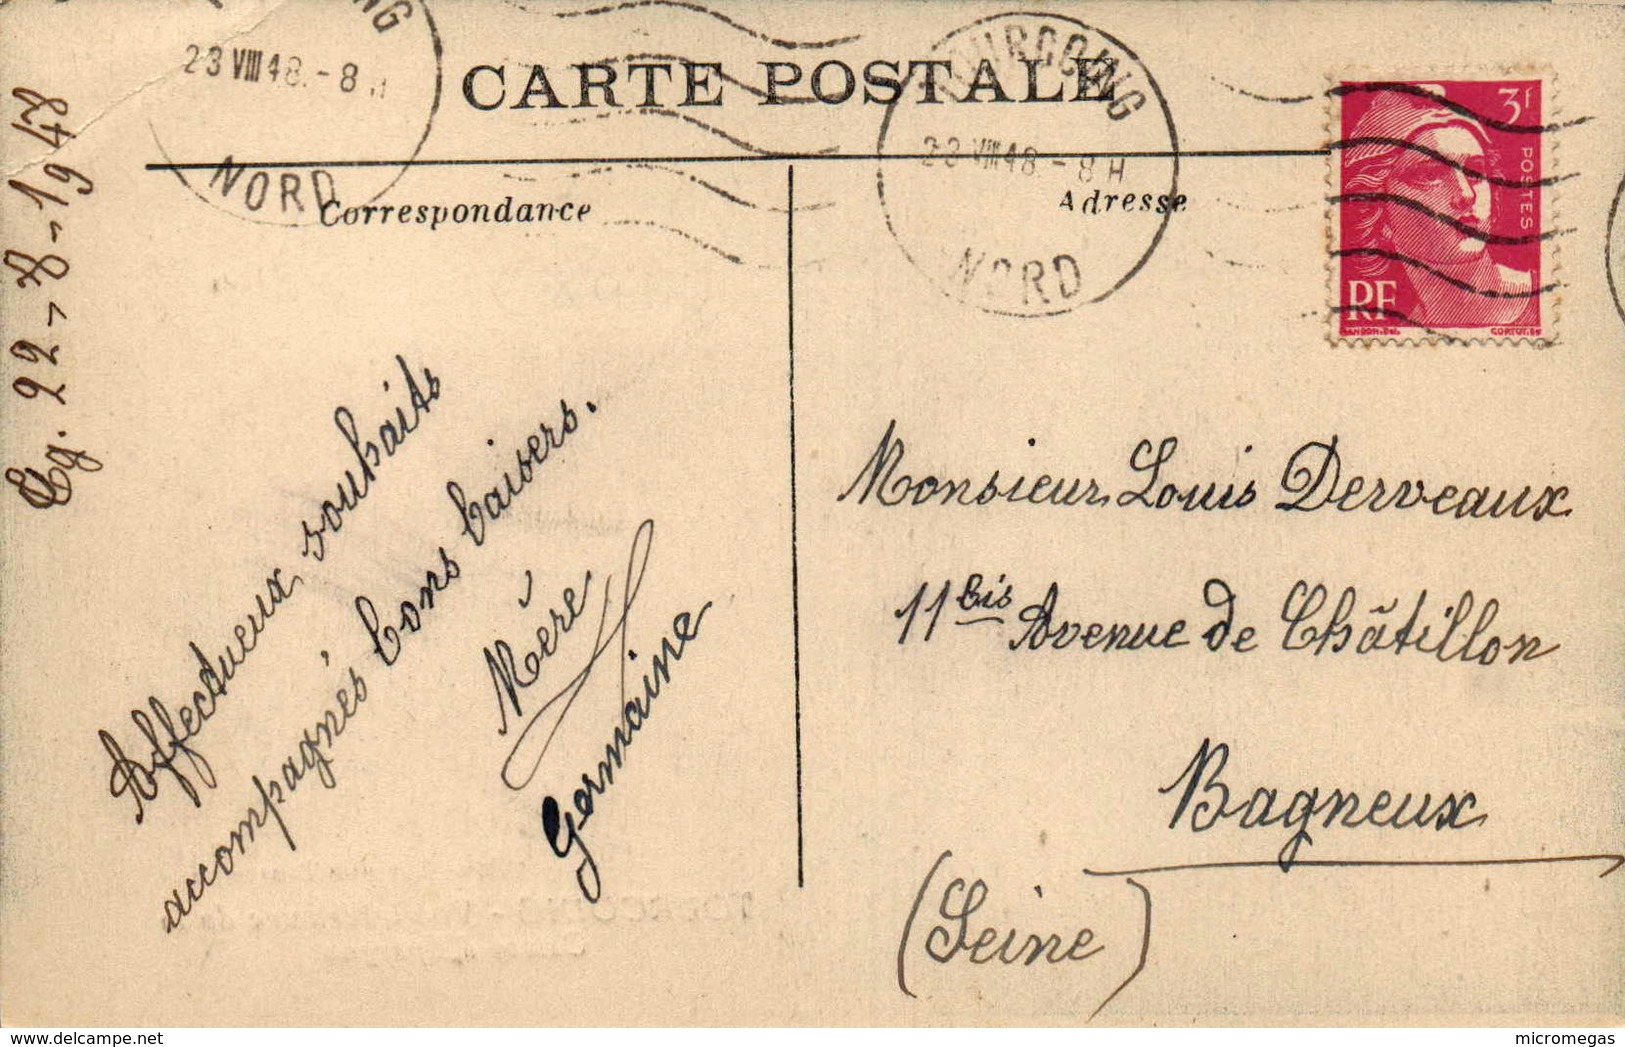 CARTE POSTALE
TOURCOING
23 VIII 48. - 8 H
NORD
TOURCOING
23 VIII 48. - 8 H
NORD
3f
POSTES
RF
GANDON.DEL.
CORTOT.SC
Correspondance
Adresse
22-8-1948
Affectueux souhaits
accompagnés bons baisers.
Mère
Germaine
Monsieur Louis Derveaux
11bis Avenue de Châtillon
Bagneux
(Seine)
www.delcampe.net
micromegas